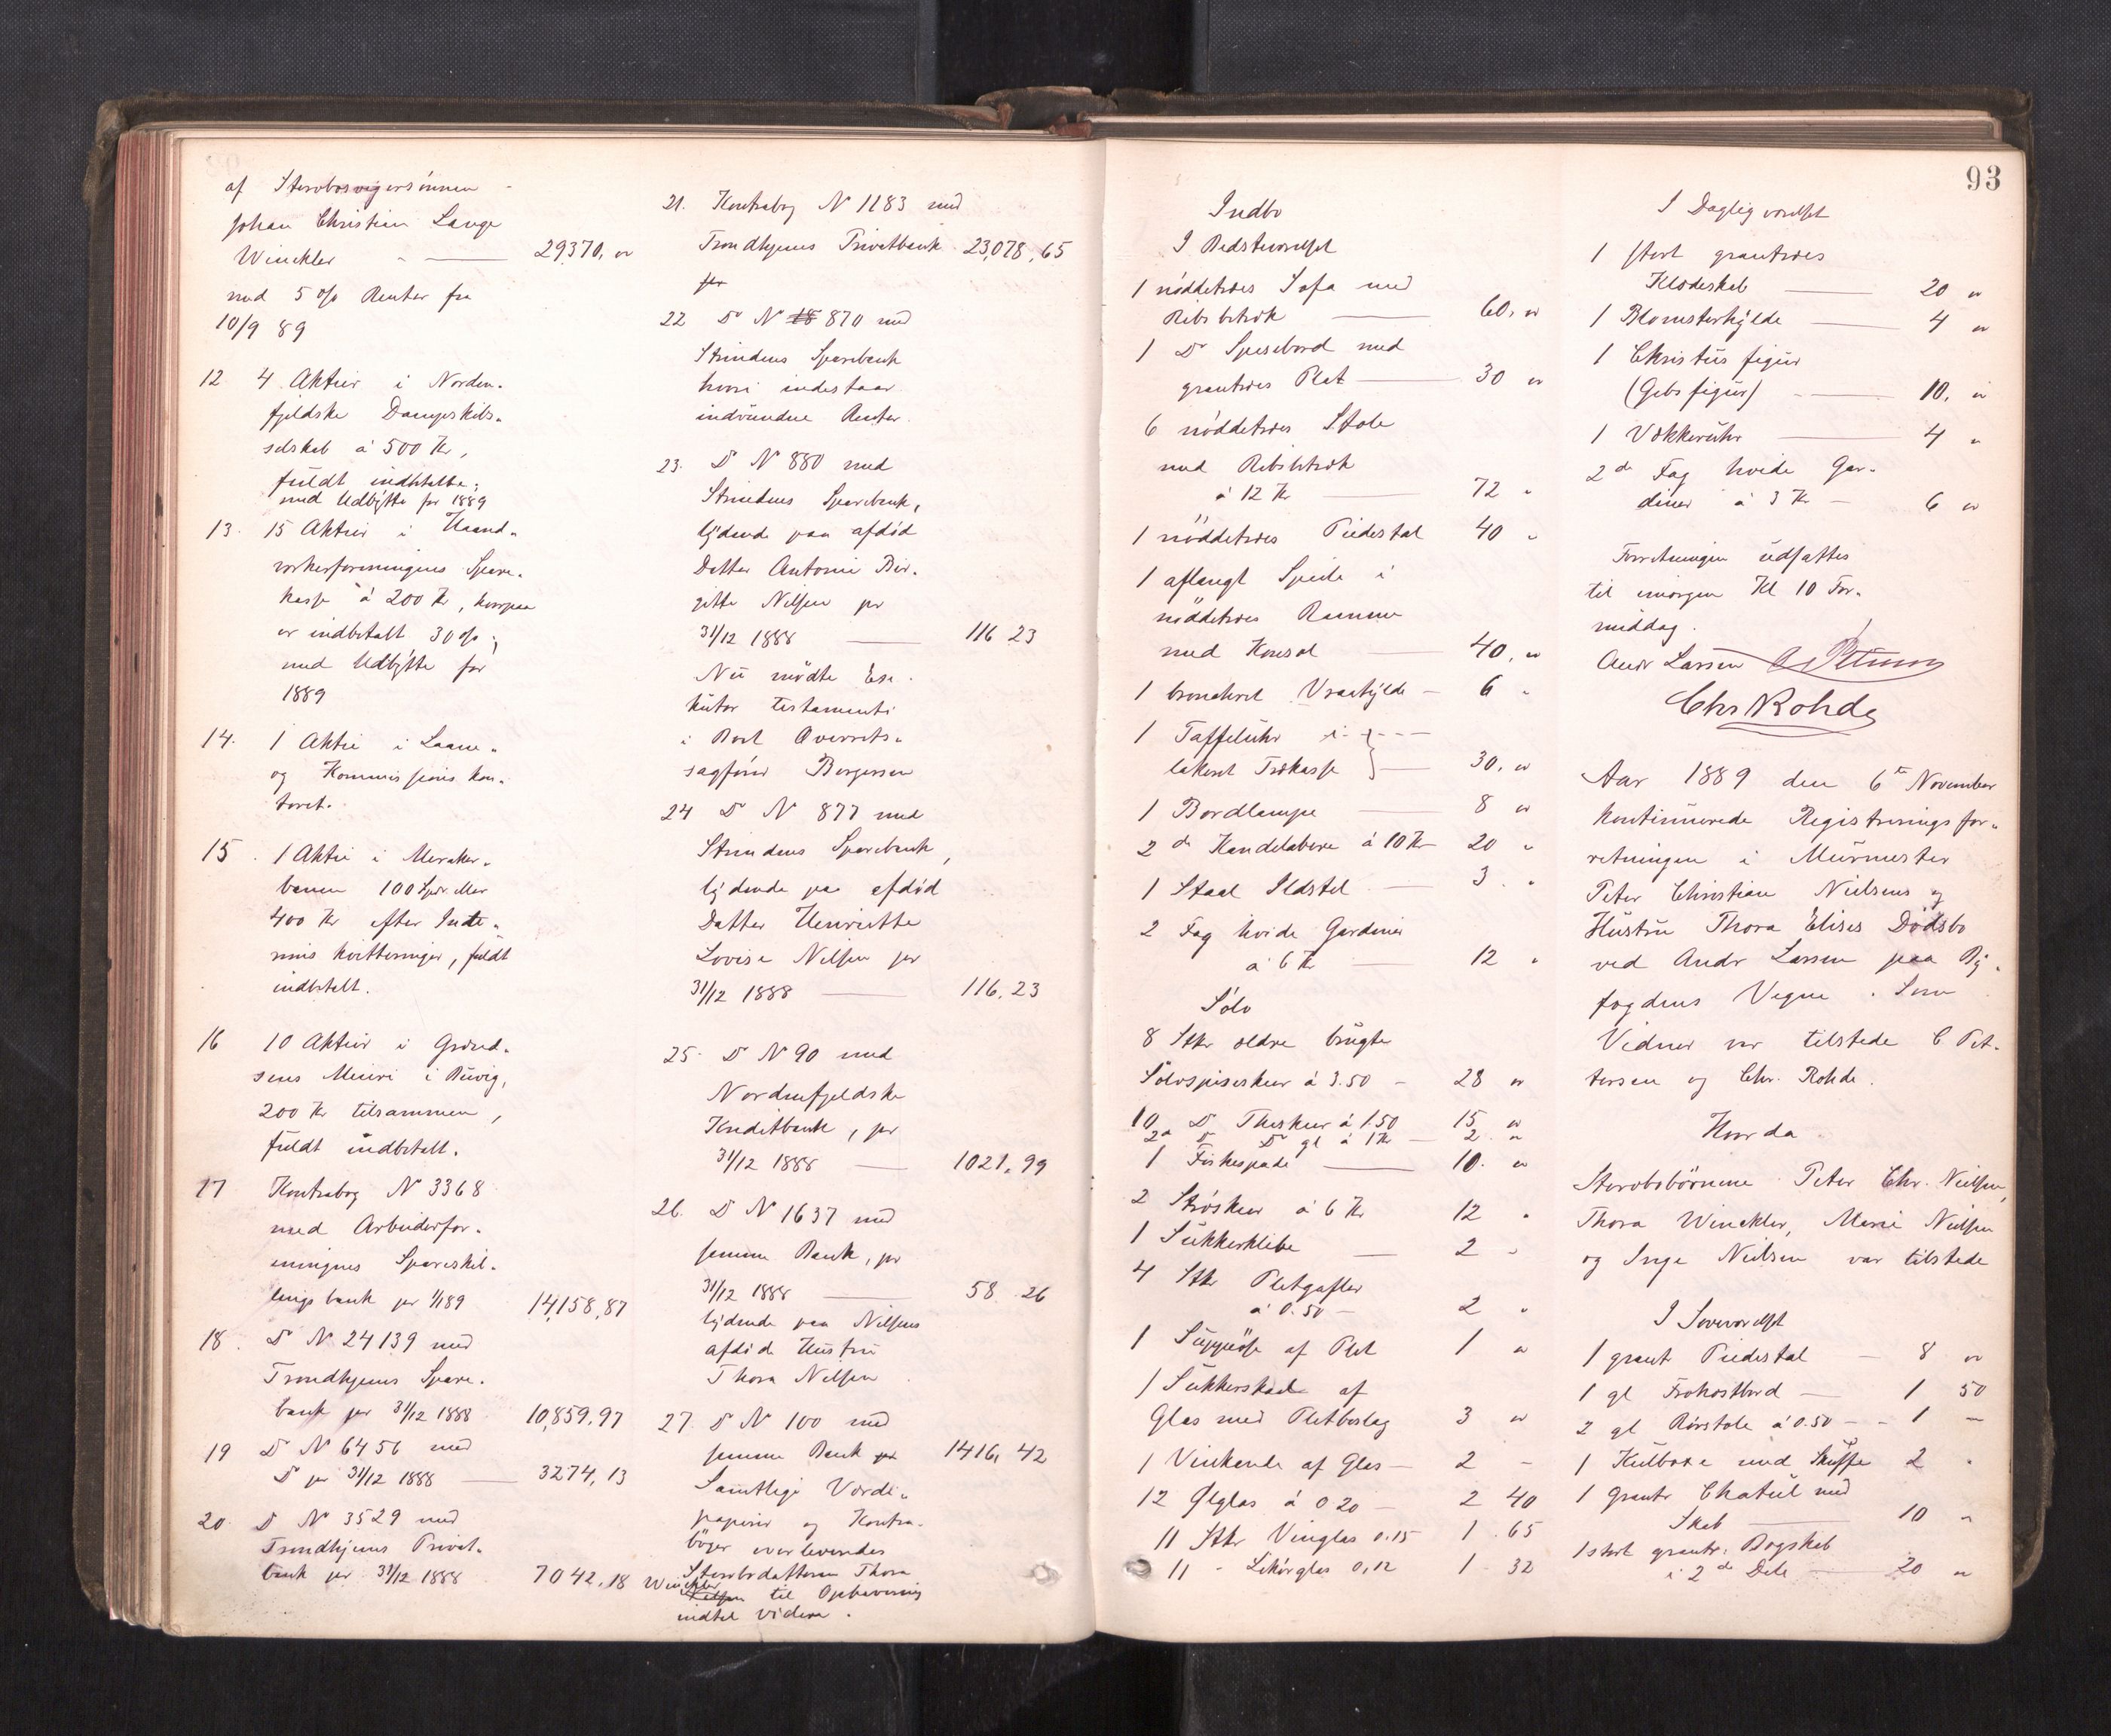 af Stervbosvigersønnen
Johan Christian Lange
Winckler 29370, "
med 5 % Renter fra
10/9 89
12 4 Aktier i Norden-
fjeldske Dampskibs-
selskab á 500 Kr,
fuldt indbetalte;
med Udbytte for 1889
13. 15 Aktier i Haand-
værkerforeningens Spare-
kasse á 200 Kr, hvorpaa
er indbetalt 30 %;
med Udbytte for
1889
14. 1 Aktie i Laane-
og Kommissionskon-
toret.
15. 1 Aktie i Meraker-
banen 100 Spdr eller
400 Kr efter Inte-
rims kvitteringer, fuldt
indbetalt.
16 10 Aktier i
Meieri i Buvig,
200 Kr tilsammen,
fuldt indbetalt.
17 Kontrabog N 3368
med Arbeiderfor-
eningnes Spareskil-
lingsbank pr 1/1 89 14,158,87
18. Do N 24139 med
Trondhjems Spare-
bank pr 31/12 1888 10,859,97
19 Do N 6456 med
Do pr 31/12 1888 3274,13
20. Do N 3529 med
Trondhjems Privat-
bank pr 31/12 1888 7042,18
21. Kontrabog N 1183 med
Trondhjems Privatbank 23,078,65
pr
22 Do N 18 870 med
Strindens Sparebank
hvori indestaar
indvundne Renter.
23. Do N 880 med
Strindens Sparebank,
lydende paa afdød
Datter Antonie Bir-
gitte Nilsen pr
31/12 1888 116 23
Nu mødte Exe-
kutor testamenti
i Boet Overrets-
sagfører Borgersen
24 Do N 877 med
Strindens Sparebank,
lydende paa afdød
Datter Henriette
Lovise Nilsen pr
31/12 1888 116,23
25. Do N 90 med
Nordenfjeldske
Kreditbank, pr
31/12 1888 1021,99
26. Do N 1637 med
samme Bank, pr
31/12 1888 58.26
lydende paa Nilsens
afdøde Hustru
Thora Nilsen
27. Do N 100 med
samme Bank pr 1416,42
Samtlige Værdi-
papirer og Kontra-
bøger overleveredes
Stervbodatteren Thora
Winckler
Nilsen til Opbevaring
indtil videre.
93
Indbo
I Bedsteværelset
1 nøddetræes Sofa med
Ribs betræk 60, "
1 Do Spisebord med
grantræes Plat 30 "
6 nøddetræes Stole
med Ribsbetræk
á 12 Kr 72 "
1 nøddetræes Piedestal 40 "
1 aflangt Speile i
nøddetræes Ramme
med Konsol 40, "
1 bronceret Vraahylde 6 "
1 Taffeluhr i
lakeret Trækasse 30, "
1 Bordlampe 8 "
2 de Kandelabere á 10 Kr 20 "
1 Staal Ildstel 3. "
2 Fag hvide Gardiner
á 6 Kr 12 "
Sølv
8 Stkr ældre brugte
Sølvspiseskeer á 3.50 28 "
10 Do Theskeer á 1.50 15 "
2 Do Do gl á 1 Kr 2 "
1 Fiskespade 10. "
2 Strøskeer á 6 Kr 12 "
1 Sukkerklibe 2 "
4 Stkr Pletgafler
á 0.50 2 "
1 Suppeøse af Plet 1 "
1 Sukkerskaal af
Glas med Pletbeslag 3 "
1 Vinkande af Glas 2 -
12 Ølglas á 0.20 2 40
11 Stkr Vinglas 0.15 1.65
11 - Likørglas 0,12 1.32
I Dagligværelset
1 stort grantræes
Klædeskab 20 "
1 Blomsterhylde 4 "
1 Christus figur
(Gibsfigur) 10, "
1 Vækkeruhr 4 "
2 de Fag hvide Gar-
diner á 3 Kr 6 "
Forretningen udsattes
til imorgen Kl 10 For-
middag.
Andr Larsen C Pettersen
Chr Rohde
Aar 1889 den 6te November
kontinuerede Registreringsfor-
retningen i Murmester
Peter Christian Nielsens og
Hustru Thora Elises Dødsbo
ved Andr Larsen paa By-
fogdens Vegne. Som
Vidner var tilstede C Pet-
tersen og Chr. Rohde.
Hvorda
Stervbobørnene Peter Chr. Nielsen,
Thora Winckler, Marie Nielsen
og Inga Nielsen var tilstede
I Soveværelset
1 grant Piedestal 8 "
1 gl Frokostbord 1 50
2 gl Rørstole á 0.50 1 -
1 Kulboxe med Skuffe 2 "
1 grantr Chatul med
Skab 10 "
1 stort grantr. Bogskab
i 2 de Dele 20 "